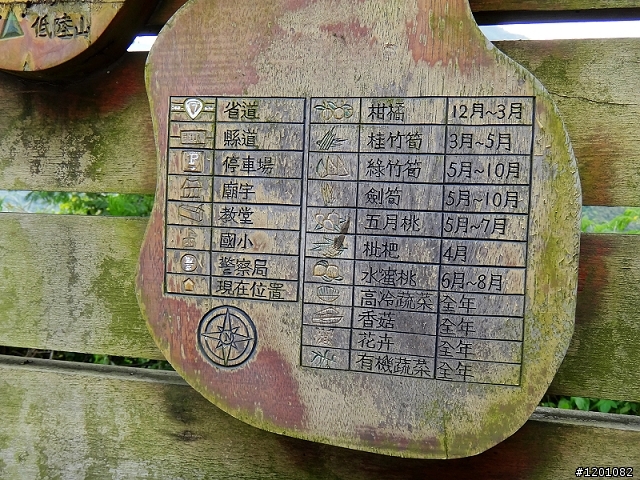 低陸山
省道
縣道
P 停車場
廟宇
教堂
國小
警察局
現在位置
N
柑橘 12月~3月
桂竹筍 3月~5月
綠竹筍 5月~10月
劍筍 5月~10月
五月桃 5月~7月
枇杷 4月
水蜜桃 6月~8月
高冷蔬菜 全年
香菇 全年
花卉 全年
有機蔬菜 全年
#1201082